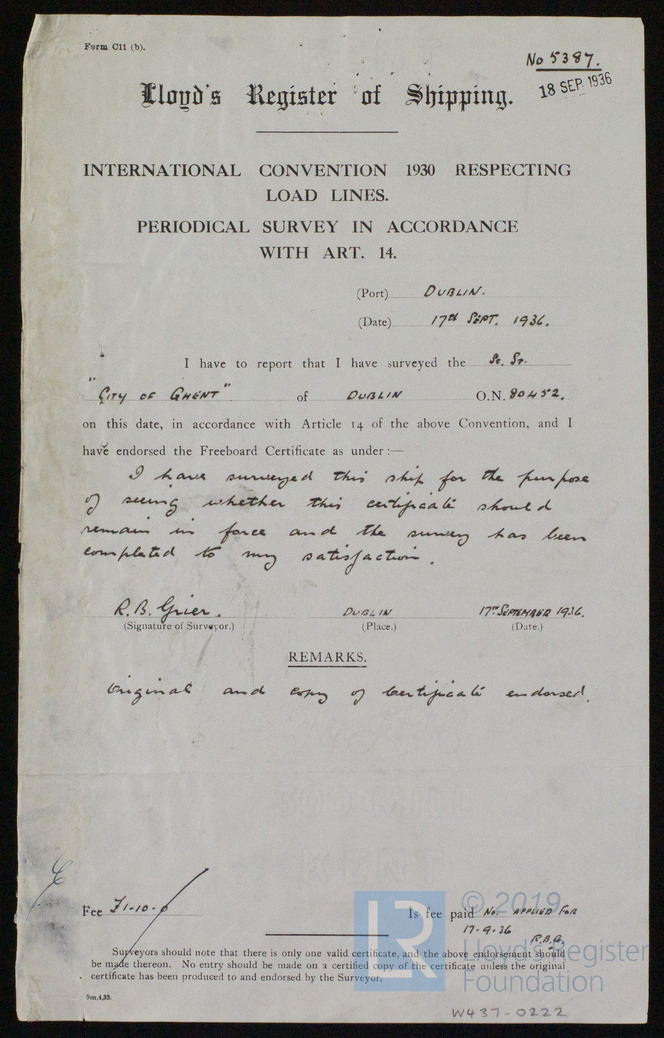 Form C11 (b).
No 5387.
18 SEP 1936
Lloyd's Register of Shipping.
INTERNATIONAL CONVENTION 1930 RESPECTING
LOAD LINES.
PERIODICAL SURVEY IN ACCORDANCE
WITH ART. 14.
(Port) DUBLIN.
(Date) 17th SEPT. 1936.
I have to report that I have surveyed the Sc. Sr.
"CITY OF GHENT" of DUBLIN O.N. 80452.
on this date, in accordance with Article 14 of the above Convention, and I
have endorsed the Freeboard Certificate as under :—
I have surveyed this ship for the purpose
of seeing whether this certificate should
remain in force and the survey has been
completed to my satisfaction.
R. B. Grier. DUBLIN 17th SEPTEMBER 1936.
(Signature of Surveyor.) (Place.) (Date.)
REMARKS.
Original and copy of Certificate endorsed.
Fee £1-10-0 Is fee paid No. APPLIED FOR
17-9-36
R.B.G.
Surveyors should note that there is only one valid certificate, and the above endorsement should
be made thereon. No entry should be made on a certified copy of the certificate unless the original
certificate has been produced to and endorsed by the Surveyor.
5m.4,33.
LR
© 2019
Lloyd's Register
Foundation
W437-0222